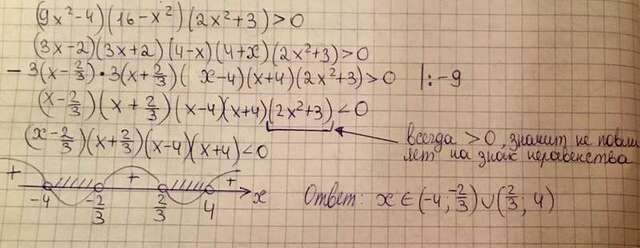 (9x²-4)(16-x²)(2x²+3)>0
(3x-2)(3x+2)(4-x)(4+x)(2x²+3)>0
-3(x-⅔)·3(x+⅔)(x-4)(x+4)(2x²+3)>0 |:-9
(x-⅔)(x+⅔)(x-4)(x+4)(2x²+3)<0
(x-⅔)(x+⅔)(x-4)(x+4)<0
всегда >0, значит не повли
яет на знак неравенства
+ + +
-4 -2/3 2/3 4 x
Ответ: x∈(-4; -2/3)∪(2/3; 4)